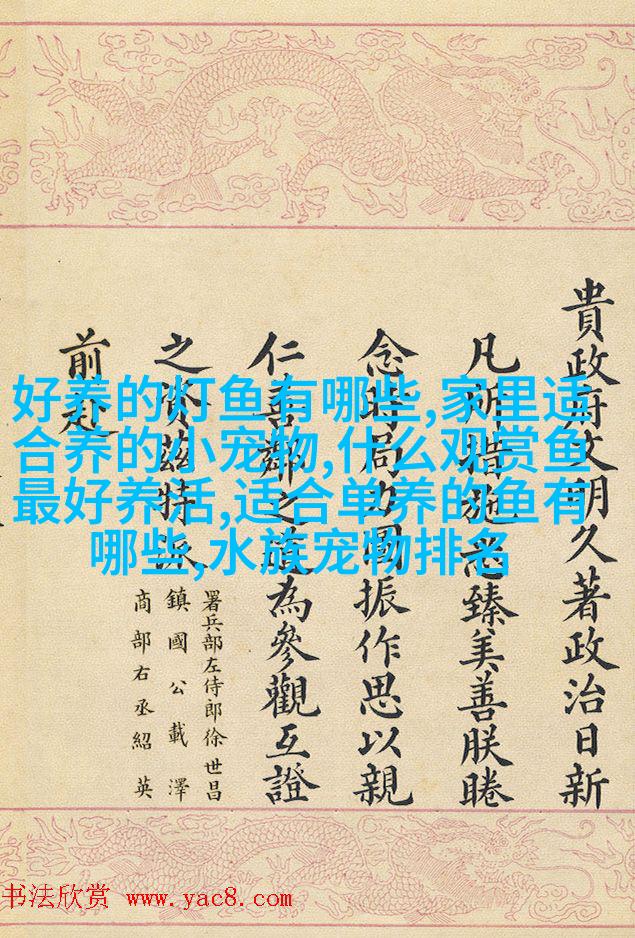 好养的灯鱼有哪些,家里适
合养的小宠物,什么观赏鱼
最好养活,适合单养的鱼有
哪些,水族宠物排名
貴政府文明久著政治日新
凡所措施悉臻美善朕睠
念時局力圖振作思以親
仁善鄰之道為參觀互證
之資茲特派
署兵部左侍郎徐世昌
鎮國公載澤
商部右丞紹英
前赴
书法欣赏 www.yac8.com